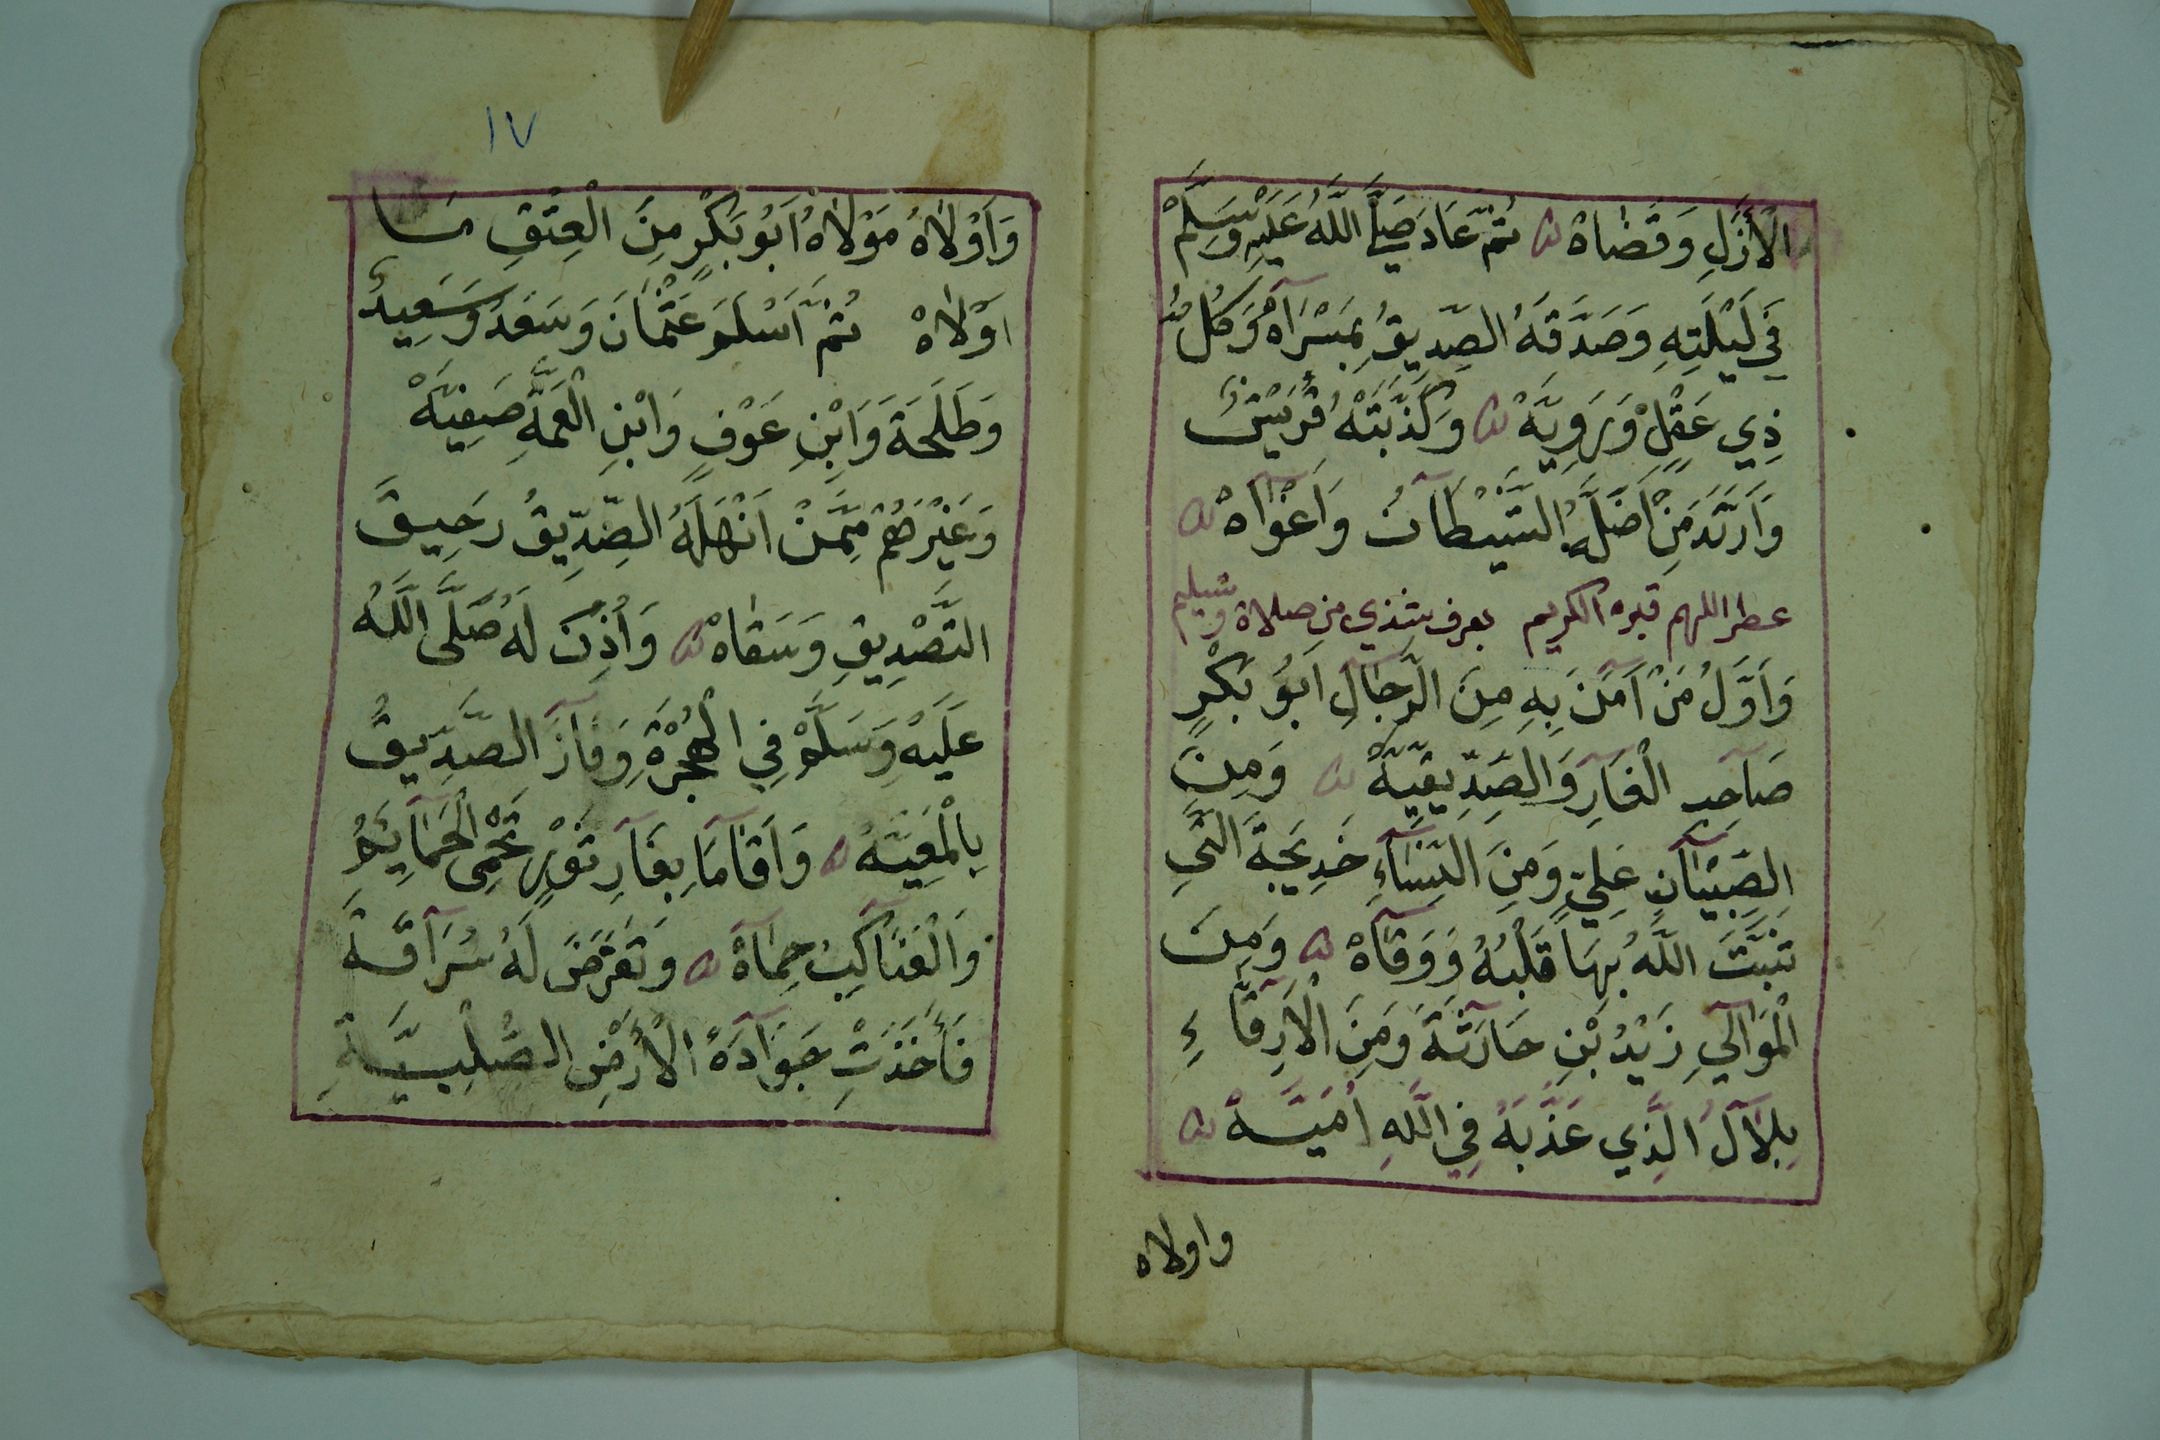 الْأَزَلِ وَقَضَاهْ ثُمَّ عَادَ صَلَّى اللَّهُ عَلَيْهِ وَسَلَّمْ
فِي لَيْلَتِهِ وَصَدَّقَهُ الصِّدِيقُ بِمَسْرَآهُ وَكُلُّ
ذِي عَقْلٍ وَرَوِيَّهْ وَكَذَّبَتْهُ قُرَيْشٌ
وَارْتَدَّ مَنْ أَضَلَّهُ الشَّيْطَآنُ وَاَغْوَاهْ
عطر اللهم قبره الكريم بعرف شذي من صلاة وتسليم
وَاَوَّلُ مَنْ آمَنَ بِهِ مِنَ الرِّجَالِ اَبُو بَكْرٍ
صَاحِبِ الْغَارِ وَالصِّدِّيقِيَّهْ وَمِنَ
الصِّبْيَانِ عَلِيٌّ وَمِنَ النِّسَاءِ خَدِيجَةُ الَّتِي
ثَبَّتَ اللَّهُ بِهَا قَلْبُهُ وَوَقَاهْ وَمِنَ
الْمَوَالِي زَيْدُ بْنِ حَارَثَةَ وَمِنَ الْاَرِقَّاءِ
بِلَالُ الَّذِي عَذَّبَهُ فِي اللَّهِ اُمَيَّةْ
واولاه
١٧
وَاَوْلَاهُ مَوْلَاهُ اَبُو بَكْرٍ مِنَ الْعِتْقِ مَا
اَوْلَاهْ ثُمَّ اَسْلَمَ عُثْمَانَ وَسَعْدُ وَسَعِيدُ
وَطَلْحَةَ وَابْنِ عَوْفٍ وَابْنِ الْعَمَّةِ صَفِيَّهْ
وَغَيْرَهُمْ مِمَّنْ اَنْهَلَهُ الصِّدِّيقُ رَحِيقَ
التَّصْدِيقِ وَسَقَاهْ وَأُذِنَ لَهُ صَلَّى اللَّهُ
عَلَيْهِ وَسَلَّمْ فِي الْهِجْرَةِ وَفَازَ الصِّدِّيقُ
بِالْمَعِيَّهْ وَاَقَامَا بِغَارِ ثَوْرٍ تَحْمِى الْحَمَائِمُ
وَالْعَنَاكِبُ حِمَاهْ وَتَعَرَّضَ لَهُ سُرَاقَةْ
فَأَخَذَتْ جَوَادَهُ الْأَرْضِ الصُّلْبِيَّةِ